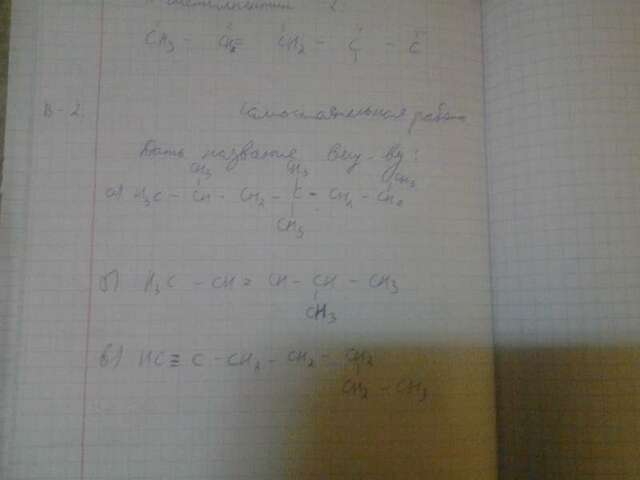 CH3 - CH2 - CH2 - C - C
В-2. Самостоятельная работа
Дать название вещ-ву:
CH3 CH3 CH3
а) H3C - CH - CH2 - C - CH2 - CH2
CH3
б) H3C - CH = CH - CH - CH3
CH3
в) HC ≡ C - CH2 - CH2 - CH2
CH2 - CH3